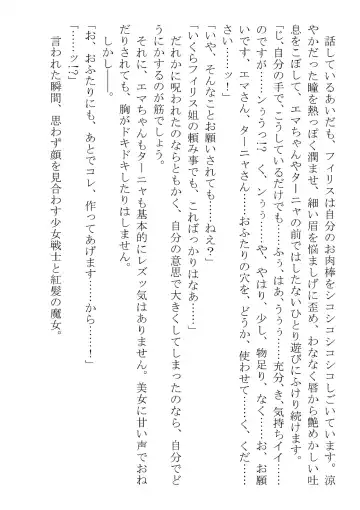 話しているあいだも、フィリスは自分のお肉棒をシコシコシコシコしごいています。涼
やかだった瞳を熱っぽく潤ませ、細い眉を悩ましげに歪め、わななく唇から艶めかしい吐
息をこぼして、エマちゃんやターニャの前ではしたないひとり遊びにふけり続けます。
「じ、自分の手で、こうしているだけでも……ふぅ、はあ、うぅぅ……充分、き、気持ちイイ……
のですが……ンぅぅっ!?　く、ンぅぅ……や、やはり、少し、物足り、なく……お、お願
いです、エマさん、ターニャさん……おふたりの穴を、どうか、使わせて……く、くだ……
さい……ッ！」
「いや、そんなことお願いされても……ねえ？」
「いくらフィリス姐の頼み事でも、こればっかりはなあ……」
だれかに呪われたのならともかく、自分の意思で大きくしてしまったのなら、自分でど
うにかするのが筋でしょう。
それに、エマちゃんもターニャも基本的にレズッ気はありません。美女に甘い声でおね
だりされても、胸がドキドキしたりはしません。
しかし――。
「お、おふたりにも、あとでコレ、作ってあげます……から……！」
「……ッ!?」
言われた瞬間、思わず顔を見合わす少女戦士と紅髪の魔女。